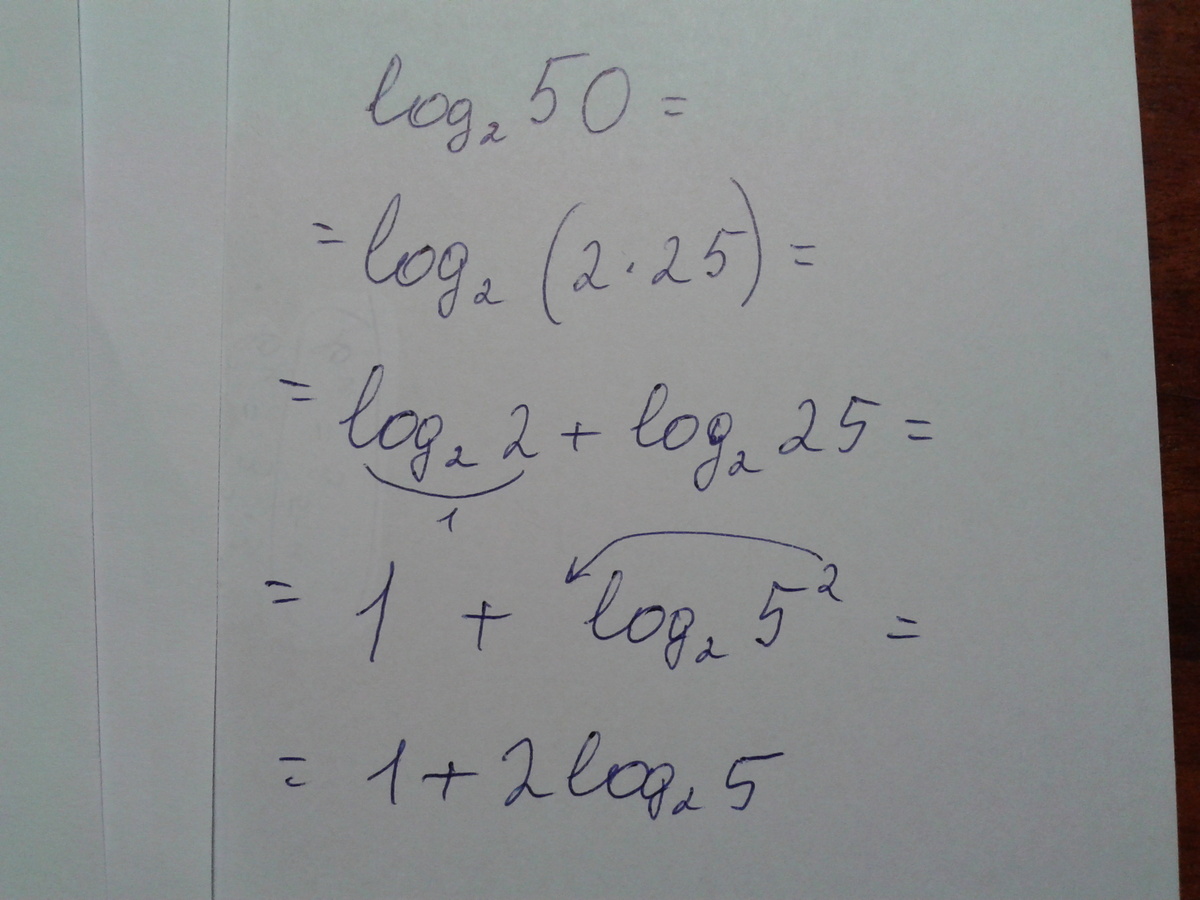 log₂ 50 =
= log₂ (2·25) =
= log₂ 2 + log₂ 25 =
1
= 1 + log₂ 5² =
= 1 + 2 log₂ 5